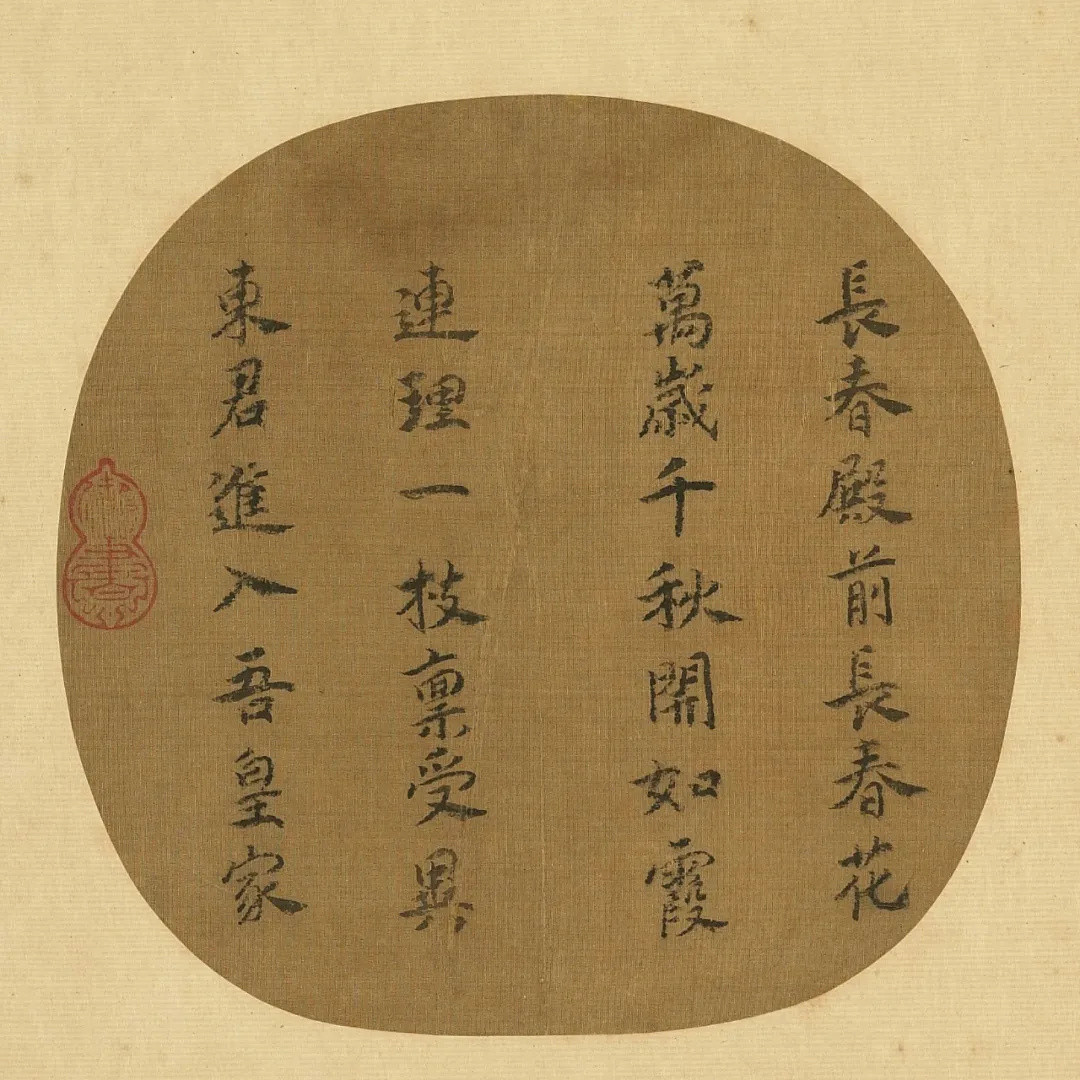 長春殿前長春花
萬歲千秋開如霞
連理一枝稟受異
東君進入吾皇家